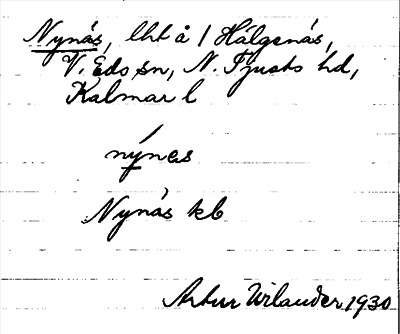 Nynäs, lht å / Hálgenäs,
V. Eds sn, N. Tjusts hd,
Kalmar l
nýnes
Nynäs kb
Artur Wilander 1930